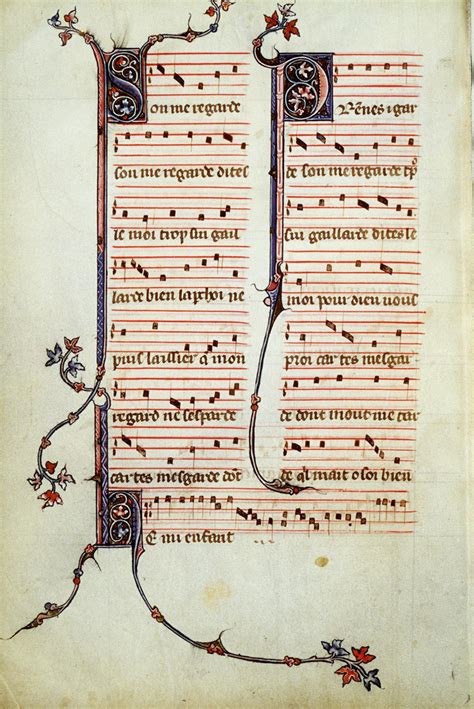 Son me regarde
son me regarde dites
le moi trop sui gail
larde bien laꝑchoi ne
puis laissier q mon
regard ne sesparde
car tes mesgarde dōt
Prenes i gar
de son me regarde tp̄
sui gaillarde dites le
moi pour dieu vous
proi car tes mesgar
de dont mout me tar
de ql mait o soi bien
He mi enfant